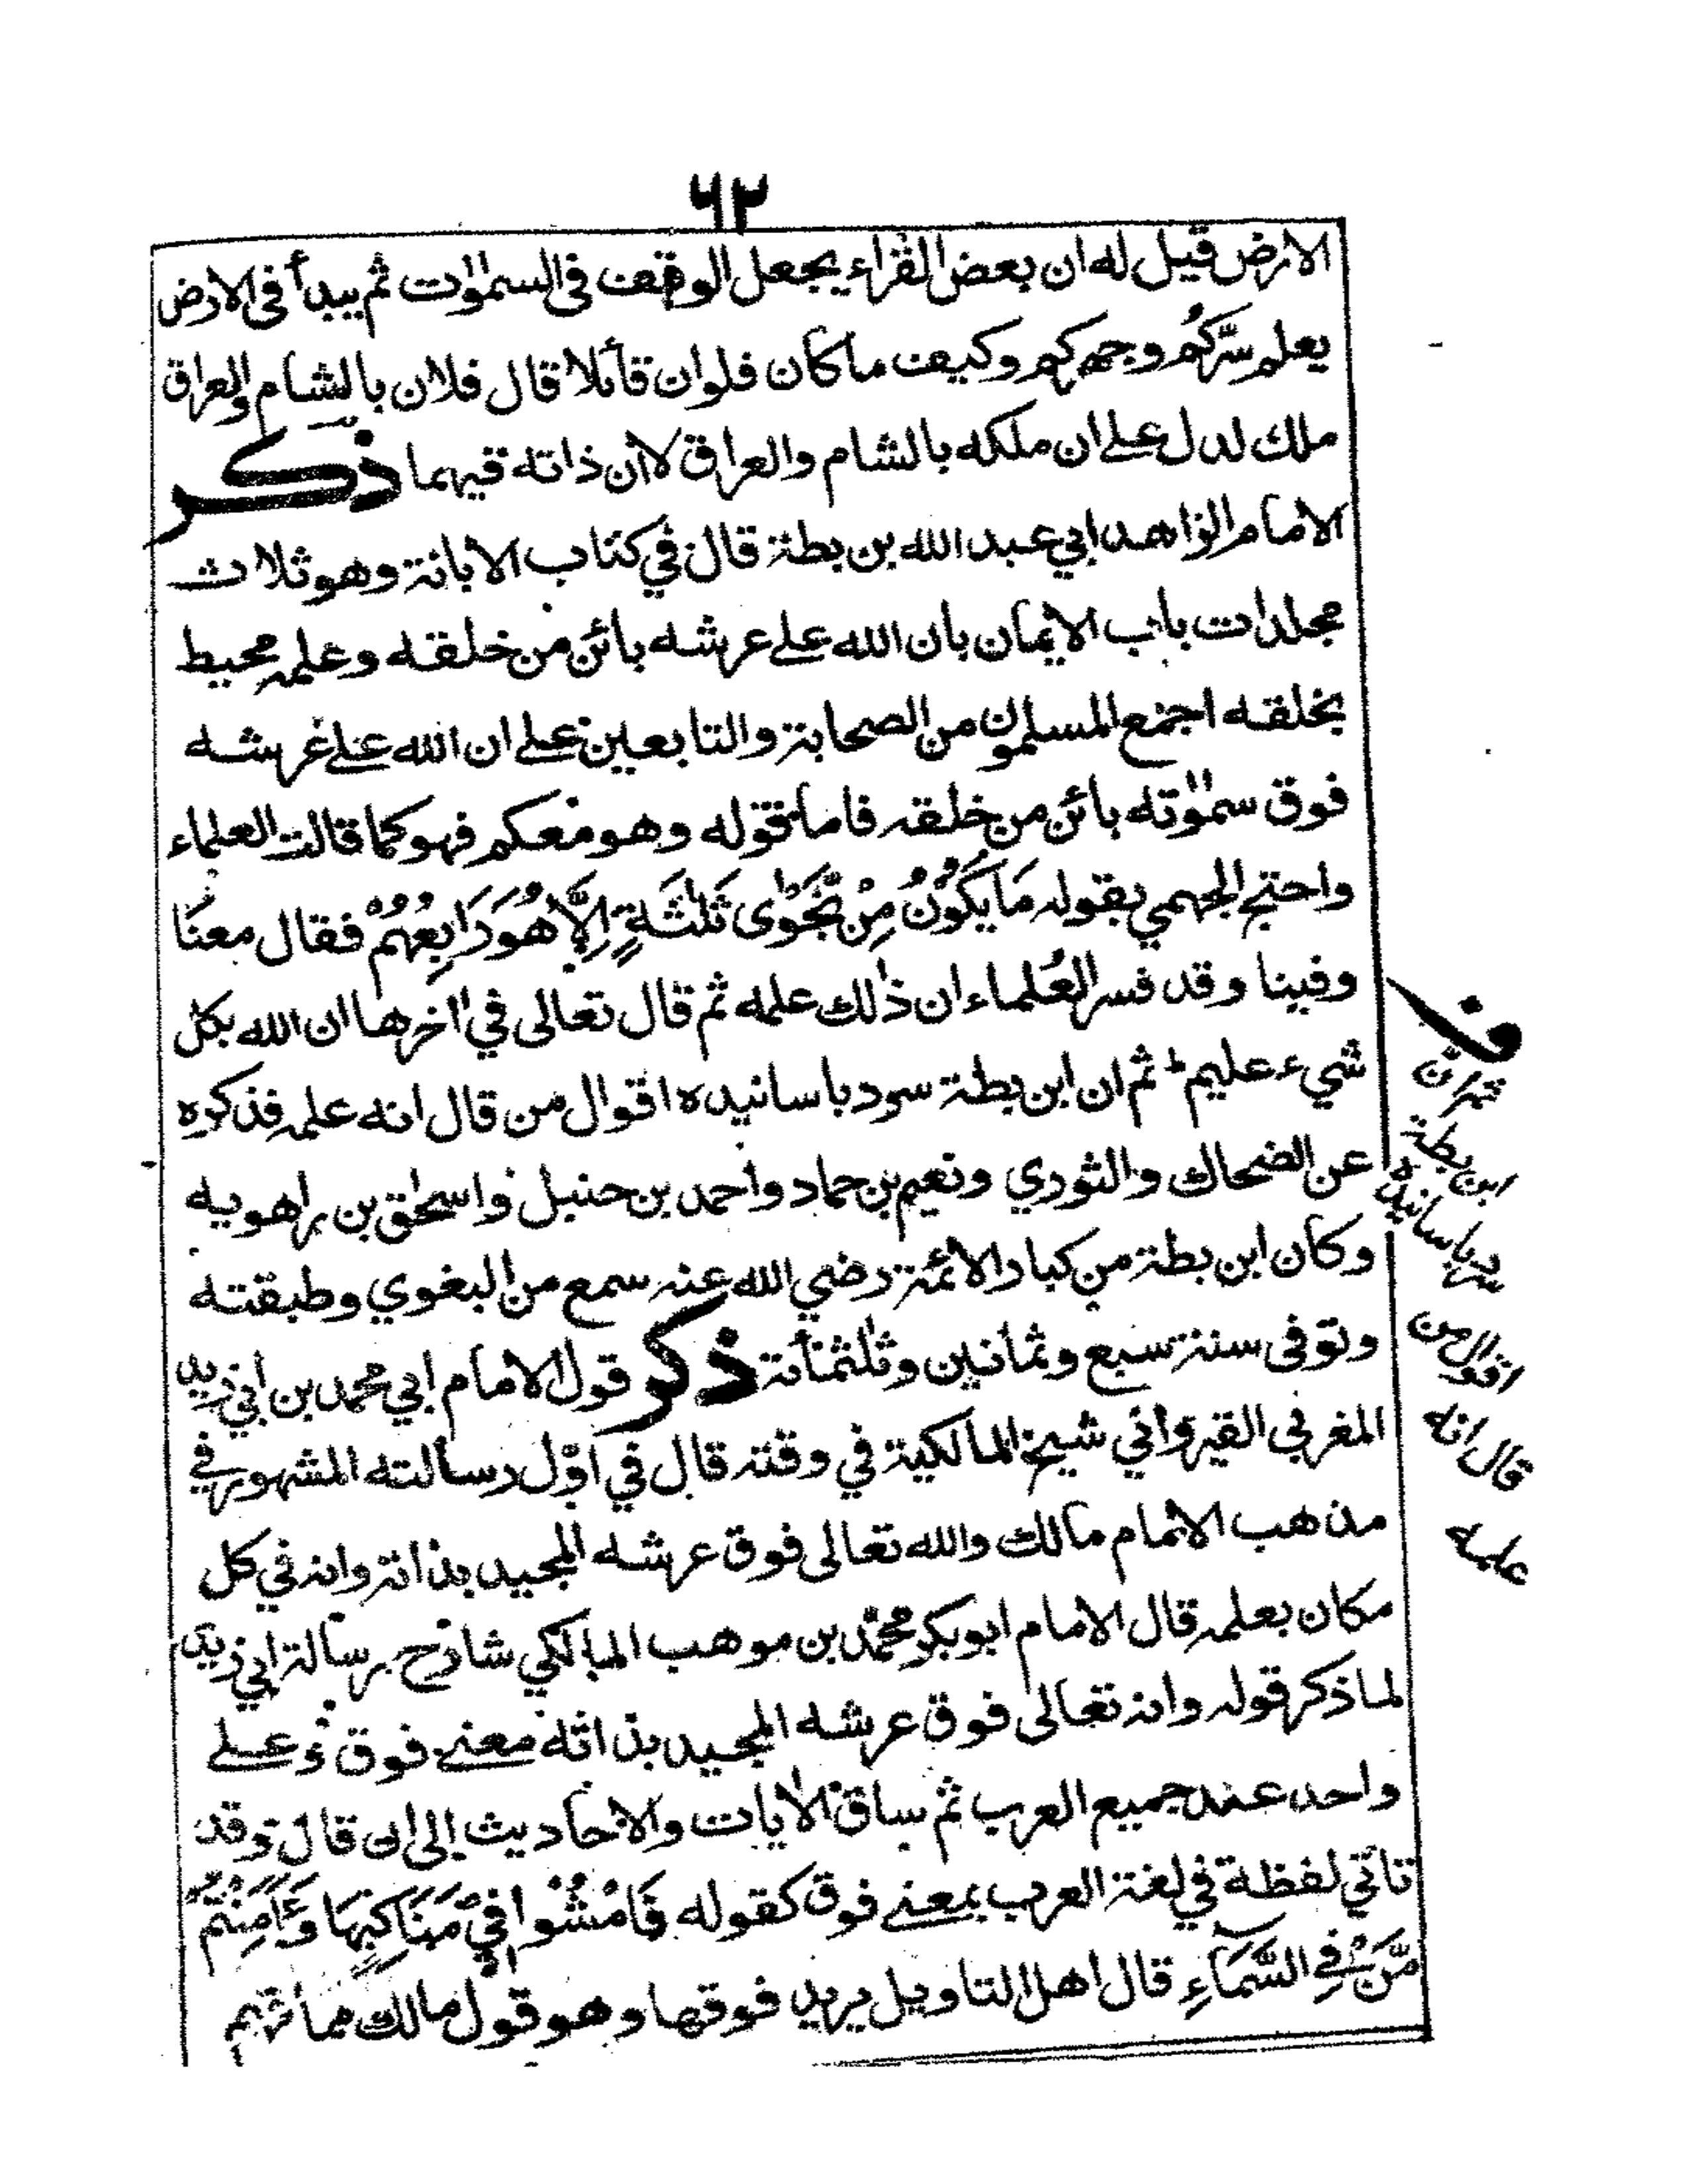 ٦٢
الارض قيل له ان بعض القراء يجعل الوقف فى السمٰوٰت ثم يبدأ فى الارض
يعلم سرّكُم وجهركم وكيف ماكان فلوان قائلا قال فلان بالشام والعراق
ملك لدل على ان ملكه بالشام والعراق لاان ذاته فيهما ذكر
الامام الزاهد ابي عبد الله بن بطة قال في كتاب الابانة وهو ثلاث
مجلدات باب الايمان بان الله على عرشه بائن من خلقه وعلمه محيط
بخلقه اجمع المسلمون من الصحابة والتابعين على ان الله على عرشه
فوق سمٰوٰته بائن من خلقه فاما قوله وهو معكم فهو كما قالت العلماء
واحتج الجهمي بقوله مَا يَكُوْنُ مِنْ نَّجْوٰى ثَلٰثَةٍ اِلَّا هُوَ رَابِعُهُمْ فقال معنَا
وفينا وقد فسر العُلماء ان ذٰلك علمه ثم قال تعالى في اٰخرها ان الله بكل
شيء عليم ط ثم ان ابن بطة سرد باسانيده اقوال من قال انه علمه فذكره
عن الضحاك والثوري ونعيم بن حماد واحمد بن حنبل واسحٰق بن راهويه
وكان ابن بطة من كبار الائمة رضي الله عنه سمع من البغوي وطبقته
وتوفى سنة سبع وثمانين وثلٰثمائة ذكر قول الامام ابي محمد بن ابي زيد
المغربي القيرواني شيخ المالكية في وقته قال في اوّل رسالته المشهور في
مذهب الامام مالك والله تعالى فوق عرشه المجيد بذاته وانه في كل
مكان بعلمه قال الامام ابو بكر محمّد بن موهب المالكي شارح رسالة ابي زيد
لما ذكر قوله وانه تعالى فوق عرشه المجيد بذاته معنى فوق وعلى
واحد عند جميع العرب ثم ساق الاٰيات والاحاديث الى ان قال وقد
تاتي لفظة في لغة العرب بمعنى فوق كقوله فَامْشُوْا فِيْ مَنَاكِبِهَا وَءَاَمِنْتُمْ
مَّنْ فِى السَّمَاءِ قال اهل التاويل يريد فوقها وهو قول مالك مما فهم
ف
ثم ان
ابن بطة
سرد باسانيده
اقوال من
قال انه
علمه